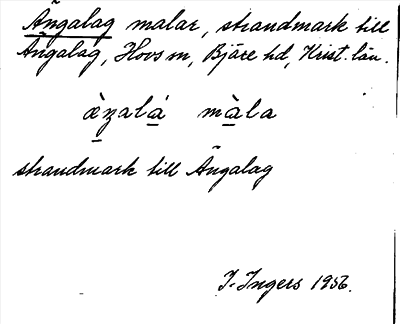 Ängalag malar, strandmark till
Ängalag, Hovs sn, Bjäre hd, Krist. län.
àŋalá màla
strandmark till Ängalag
I. Ingers 1956.